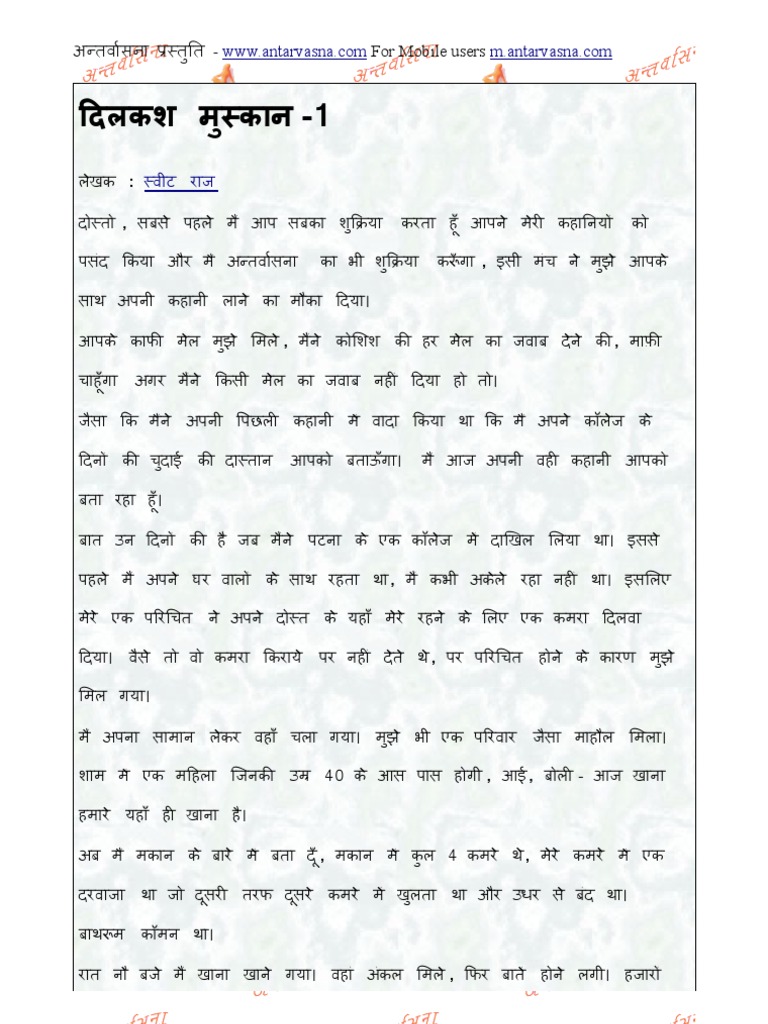 अन्तर्वासना प्रस्तुति - www.antarvasna.com For Mobile users m.antarvasna.com
अन्तर्वासना अन्तर्वासना अन्तर्वास
दिलकश मुस्कान -1
लेखक : स्वीट राज
दोस्तो , सबसे पहले मैं आप सबका शुक्रिया करता हूँ आपने मेरी कहानियो को
पसंद किया और मैं अन्तर्वासना का भी शुक्रिया करूँगा , इसी मंच ने मुझे आपके
साथ अपनी कहानी लाने का मौका दिया।
आपके काफी मेल मुझे मिले , मैंने कोशिश की हर मेल का जवाब देने की, माफ़ी
चाहूँगा अगर मैंने किसी मेल का जवाब नहीं दिया हो तो।
जैसा कि मैंने अपनी पिछली कहानी मे वादा किया था कि मैं अपने कॉलेज के
दिनो की चुदाई की दास्तान आपको बताऊँगा। मैं आज अपनी वही कहानी आपको
बता रहा हूँ।
बात उन दिनो की है जब मैंने पटना के एक कॉलेज मे दाखिल लिया था। इससे
पहले मैं अपने घर वालो के साथ रहता था, मैं कभी अकेले रहा नहीं था। इसलिए
मेरे एक परिचित ने अपने दोस्त के यहाँ मेरे रहने के लिए एक कमरा दिलवा
दिया। वैसे तो वो कमरा किराये पर नहीं देते थे, पर परिचित होने के कारण मुझे
मिल गया।
मैं अपना सामान लेकर वहाँ चला गया। मुझे भी एक परिवार जैसा माहौल मिला।
शाम मे एक महिला जिनकी उम्र 40 के आस पास होगी , आई, बोली - आज खाना
हमारे यहाँ ही खाना है।
अब मैं मकान के बारे मे बता दूँ, मकान मे कुल 4 कमरे थे, मेरे कमरे मे एक
दरवाजा था जो दूसरी तरफ दूसरे कमरे मे खुलता था और उधर से बंद था।
बाथरूम कॉमन था।
रात नौ बजे मैं खाना खाने गया। वहां अंकल मिले , फिर बाते होने लगी। हजारो